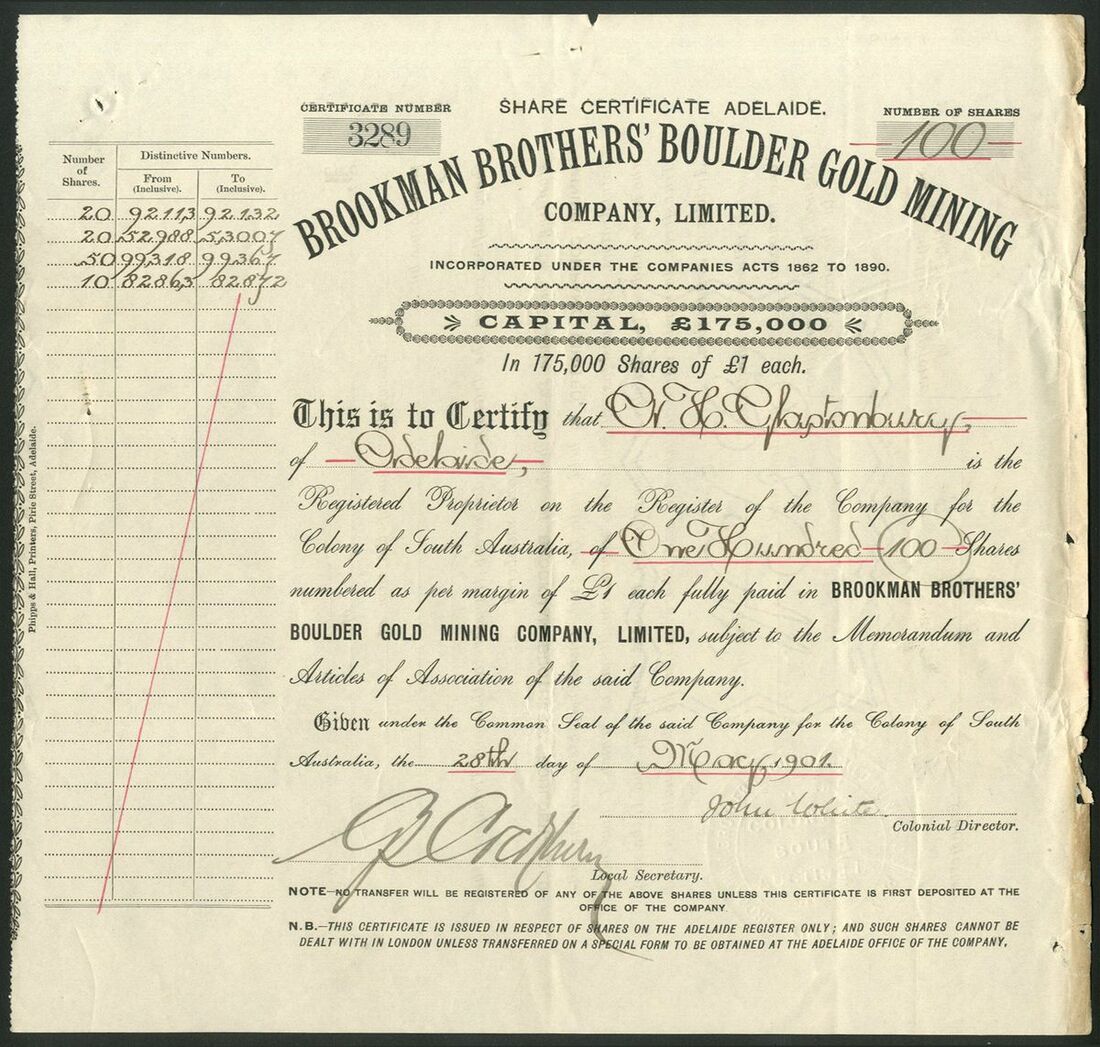 CERTIFICATE NUMBER
3289
SHARE CERTIFICATE ADELAIDE.
NUMBER OF SHARES
100
BROOKMAN BROTHERS' BOULDER GOLD MINING
COMPANY, LIMITED.
INCORPORATED UNDER THE COMPANIES ACTS 1862 TO 1890.
CAPITAL, £175,000
In 175,000 Shares of £1 each.
Number of Shares. Distinctive Numbers.
From (Inclusive). To (Inclusive).
20 92113 92132
20 52988 53007
50 99318 99367
10 82863 82872
This is to Certify that W. H. Glastonbury,
of Adelaide, is the
Registered Proprietor on the Register of the Company for the
Colony of South Australia, of One Hundred 100 Shares
numbered as per margin of £1 each fully paid in BROOKMAN BROTHERS'
BOULDER GOLD MINING COMPANY, LIMITED, subject to the Memorandum and
Articles of Association of the said Company.
Given under the Common Seal of the said Company for the Colony of South
Australia, the 28th day of May 1901.
John White
Colonial Director.
Local Secretary.
NOTE—NO TRANSFER WILL BE REGISTERED OF ANY OF THE ABOVE SHARES UNLESS THIS CERTIFICATE IS FIRST DEPOSITED AT THE
OFFICE OF THE COMPANY
N.B.—THIS CERTIFICATE IS ISSUED IN RESPECT OF SHARES ON THE ADELAIDE REGISTER ONLY; AND SUCH SHARES CANNOT BE
DEALT WITH IN LONDON UNLESS TRANSFERRED ON A SPECIAL FORM TO BE OBTAINED AT THE ADELAIDE OFFICE OF THE COMPANY,
Phipps & Hall, Printers, Pirie Street, Adelaide.